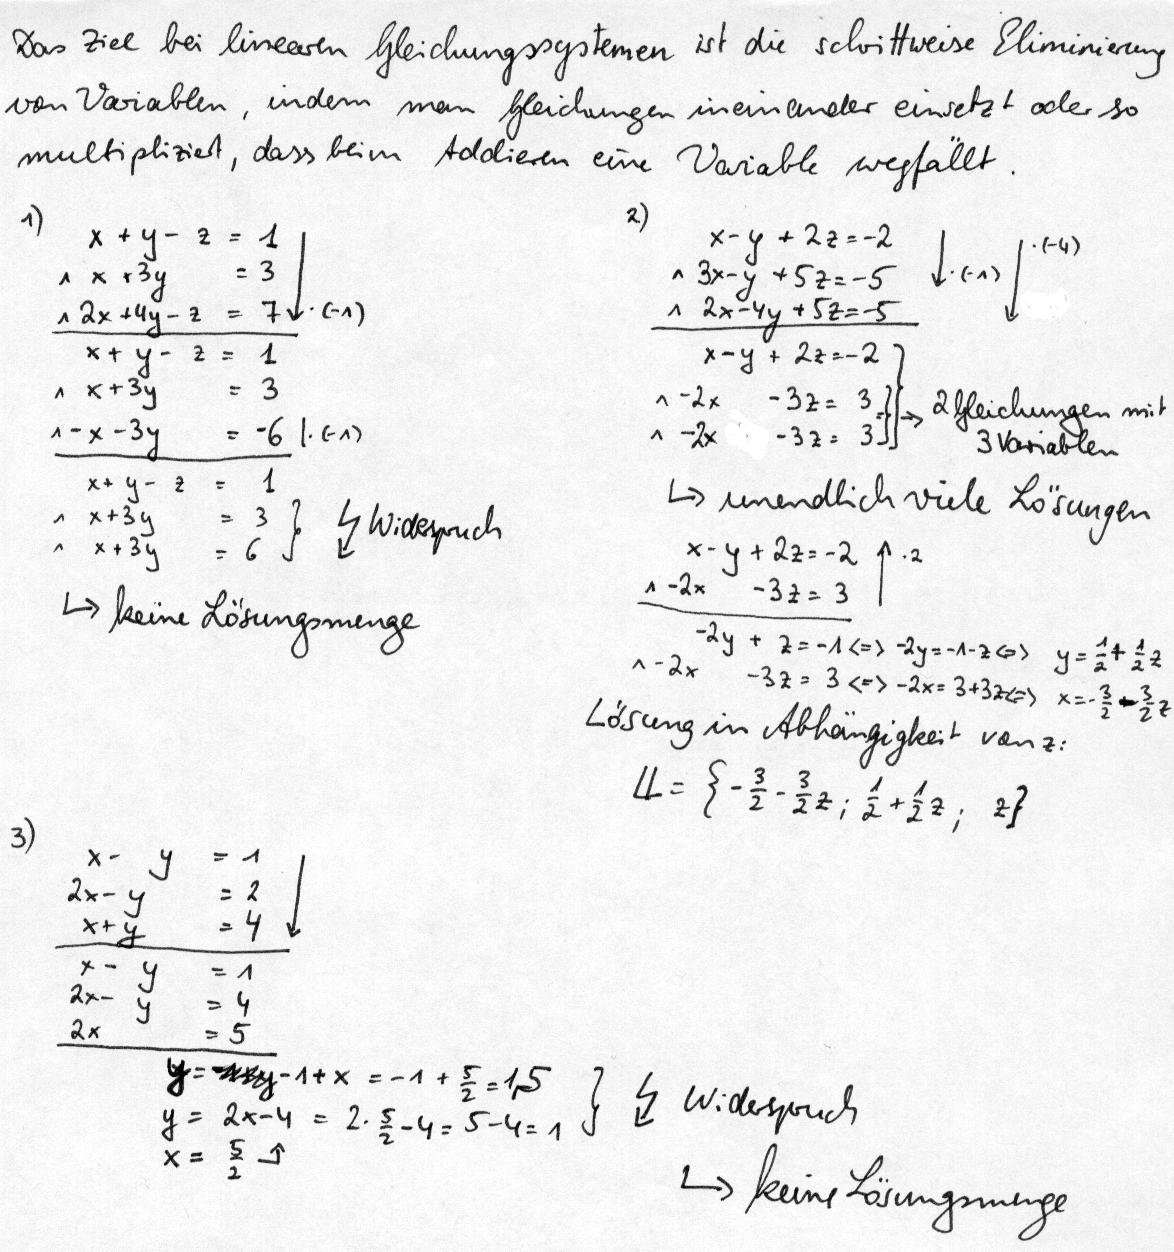 Das Ziel bei linearen Gleichungssystemen ist die schrittweise Eliminierung
von Variablen, indem man Gleichungen ineinander einsetzt oder so
multipliziert, dass beim Addieren eine Variable wegfällt.
1)
x + y - z = 1
∧ x + 3y = 3
∧ 2x + 4y - z = 7 ↓ ·(-1)
x + y - z = 1
∧ x + 3y = 3
∧ -x - 3y = -6 |·(-1)
x + y - z = 1
∧ x + 3y = 3
∧ x + 3y = 6 } ↯ Widerspruch
↳ keine Lösungsmenge
2)
x - y + 2z = -2
∧ 3x - y + 5z = -5 ↓ ·(-1) ↓ ·(-4)
∧ 2x - 4y + 5z = -5
x - y + 2z = -2
∧ -2x - 3z = 3
∧ -2x - 3z = 3 } → 2 Gleichungen mit
3 Variablen
↳ unendlich viele Lösungen
x - y + 2z = -2 ↑ ·2
∧ -2x - 3z = 3
-2y + z = -1 <=> -2y = -1 - z <=> y = 1/2 + 1/2 z
∧ -2x - 3z = 3 <=> -2x = 3 + 3z <=> x = -3/2 - 3/2 z
Lösung in Abhängigkeit von z:
𝕃 = { -3/2 - 3/2 z ; 1/2 + 1/2 z ; z }
3)
x - y = 1
2x - y = 2
x + y = 4 ↓
x - y = 1
2x - y = 4
2x = 5
y = -1 + x = -1 + 5/2 = 1,5
y = 2x - 4 = 2 · 5/2 - 4 = 5 - 4 = 1 } ↯ Widerspruch
x = 5/2 ↑
↳ keine Lösungsmenge